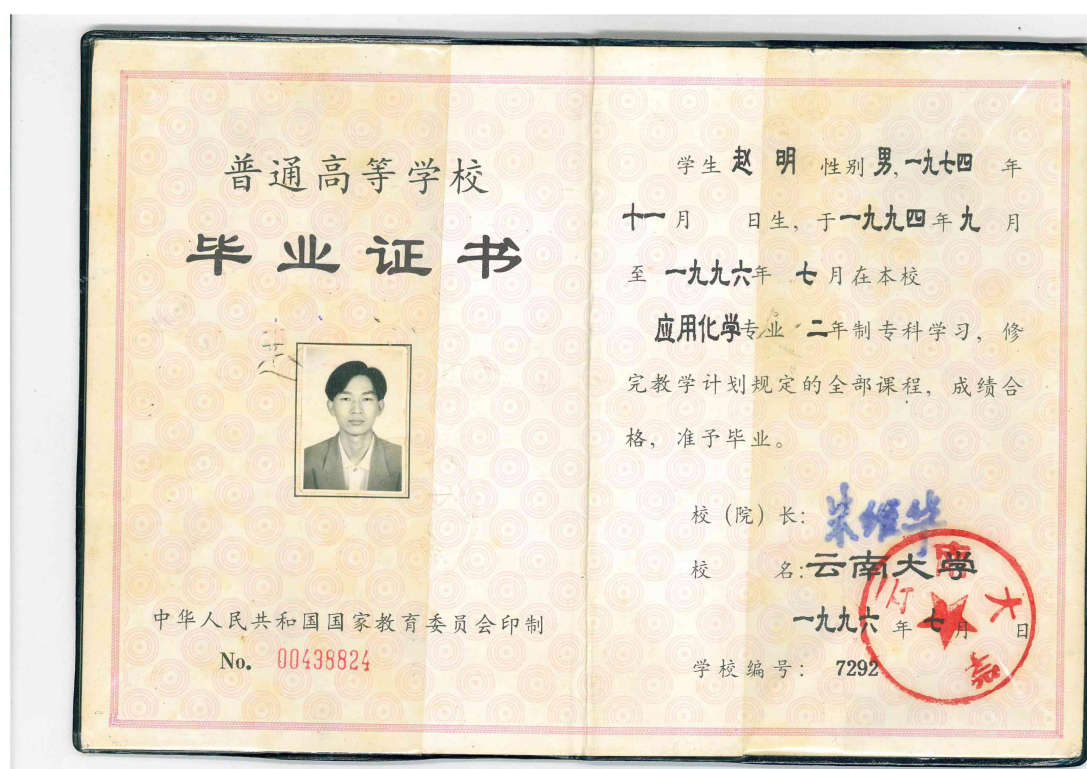 普通高等学校
毕业证书
中华人民共和国国家教育委员会印制
No. 00438824
学生 赵 明 性别 男, 一九七四 年
十一 月 日生, 于 一九九四 年 九 月
至 一九九六 年 七 月在本校
应用化学 专业 二 年制专科学习, 修
完教学计划规定的全部课程, 成绩合
格, 准予毕业。
校（院）长:
校 名: 云南大学
一九九六 年 七 月 日
学校编号: 7292